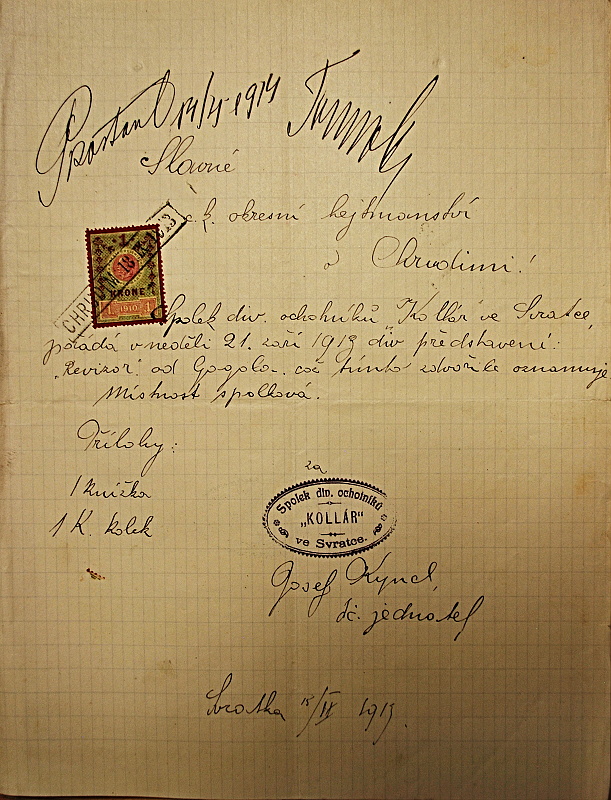 14/5 1914
Slavné
c.k. okresní hejtmanství
v Chrudimi!
CHRUDIM 18
1 KRONE 1
1910
Spolek div. ochotníků "Kollár" ve Svratce,
pořádá v neděli 21. září 1913 div. představení:
„Revizor" od Gogola. což tímto zdvořile oznamuje
Místnost spolková.
Přílohy:
1 knížka
1 K. kolek
za
Spolek div. ochotníků
„KOLLÁR"
ve Svratce.
Josef Kyncl,
tč. jednatel
Svratka 15/IX 1913.